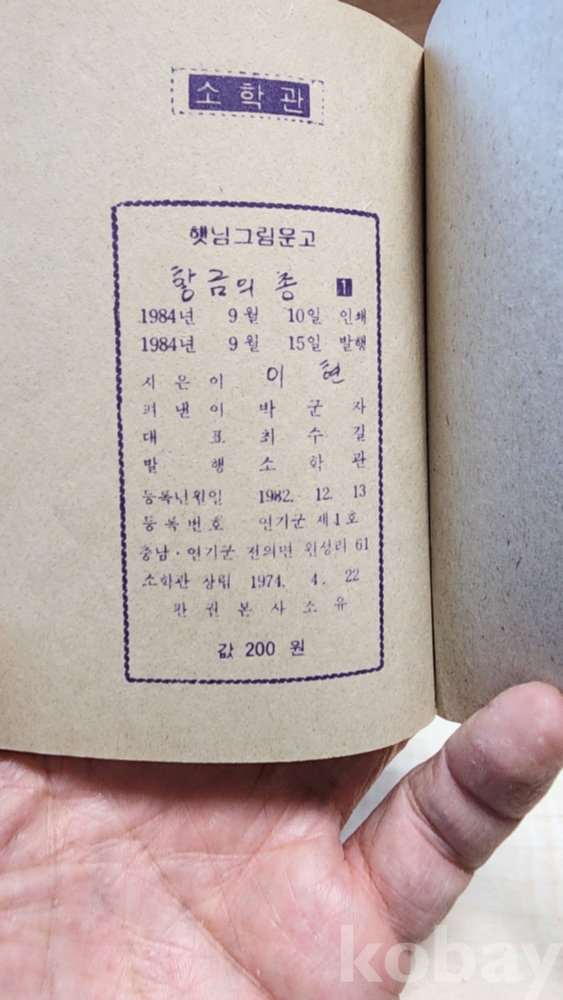 소학관
햇님그림문고
황금의 종 1
1984년 9월 10일 인쇄
1984년 9월 15일 발행
지은이 이현
펴낸이 박군자
대표 최수길
발행 소학관
등록년월일 1982. 12. 13
등록번호 연기군 제1호
충남·연기군 전의면 원성리 61
소학관 창립 1974. 4. 22
판권본사소유
값 200 원
kobay